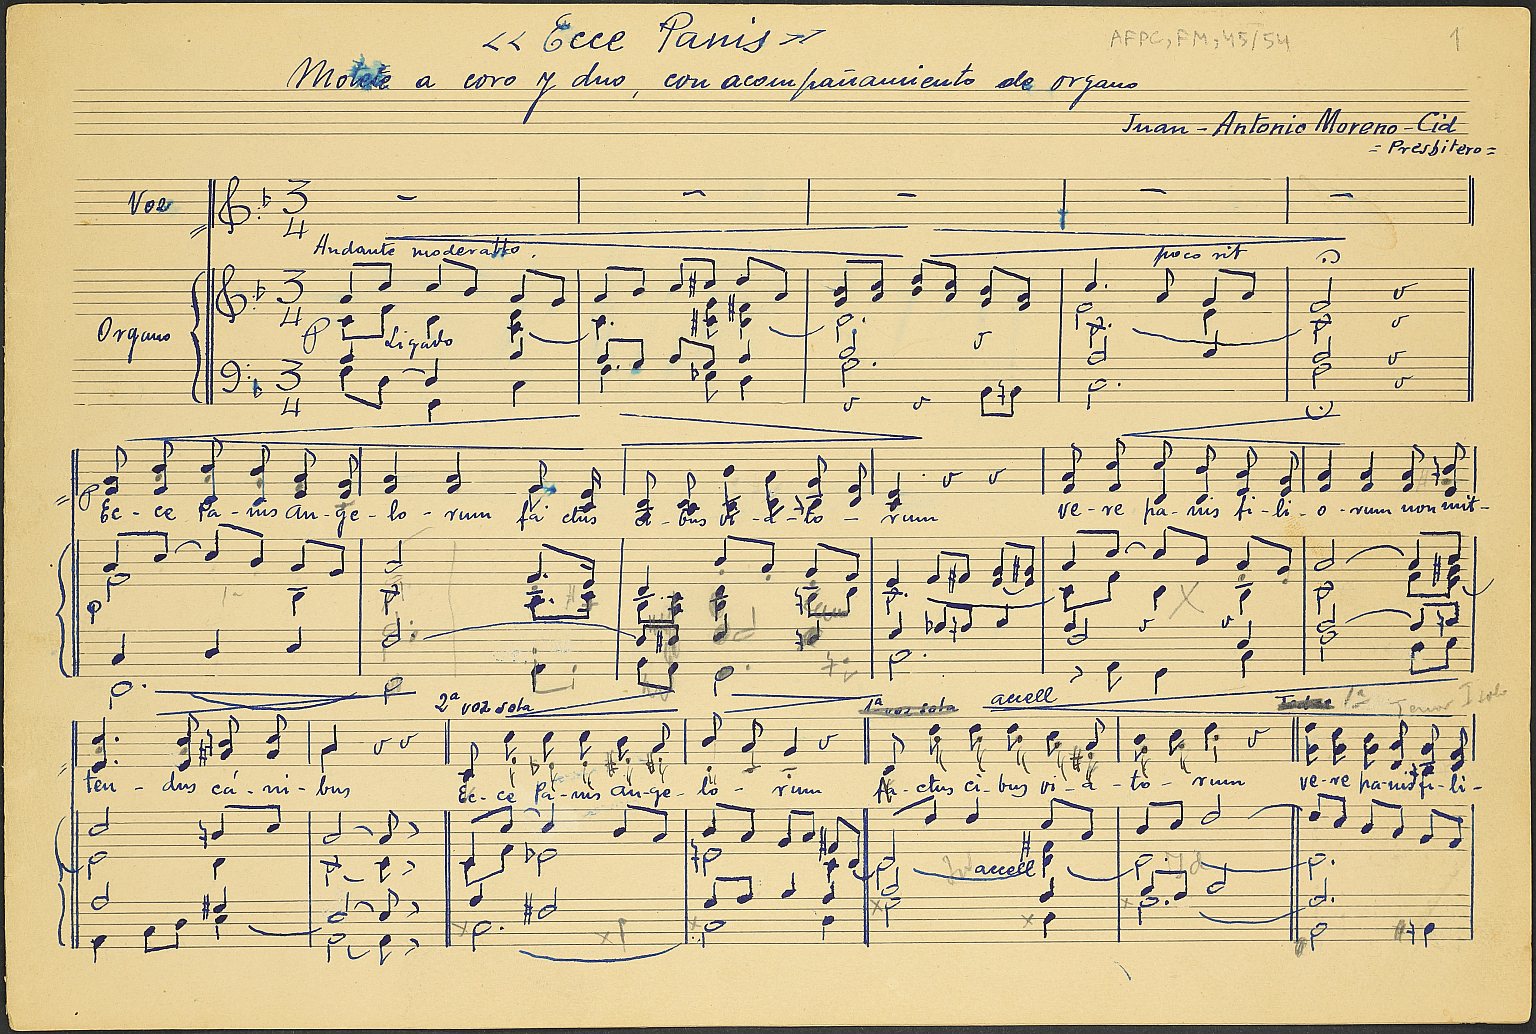 AFPC, FM, 45/54
1
<< Ecce Panis >>
Motete a coro y duo, con acompañamiento de organo
Juan-Antonio Moreno-Cid
= Presbitero =
Voz
Andante moderatto.
poco rit
Organo
p
Ligado
p
Ec-ce Pa-nis an-ge-lo-rum fa ctus ci-bus vi-a-to-rum ve-re pa-nis fi-li-o-rum non mit-
p
2ª voz sola
1ª voz sola
accell
1ª
Tenor I solo
ten-dus cá-ni-bus Ec-ce Pa-nis an-ge-lo-rum Fa-ctus ci-bus vi-a-to-rum ve-re pa-nis fi-li-
accell